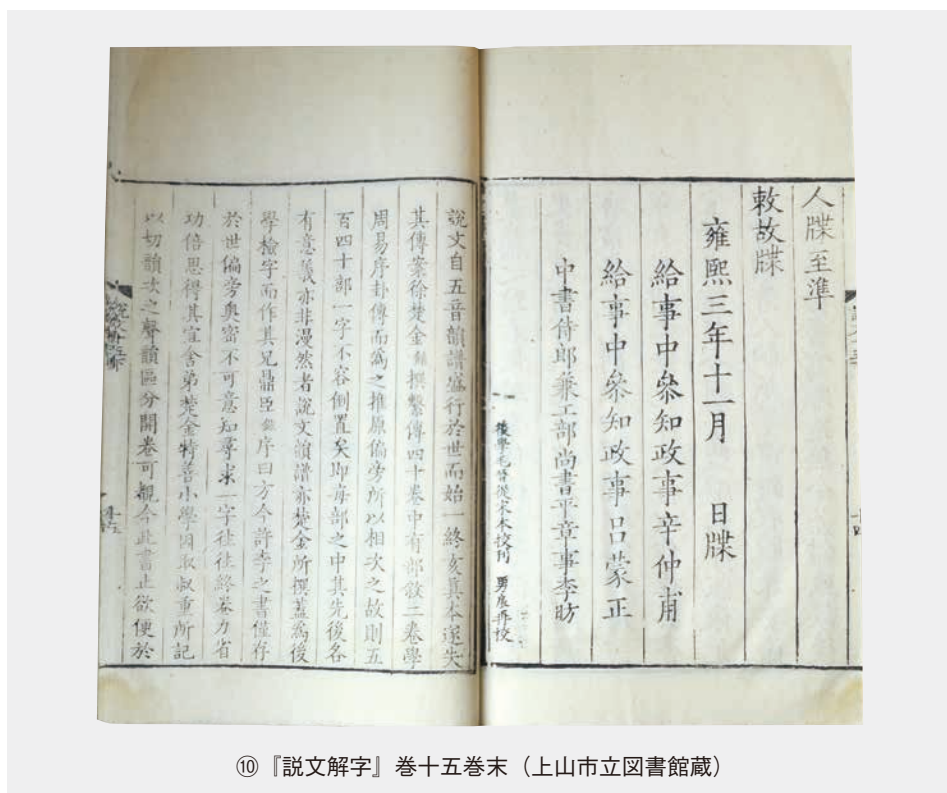 人牒至準
敕故牒
雍熙三年十一月 日牒
給事中叅知政事辛仲甫
給事中叅知政事呂蒙正
中書侍郎兼工部尚書平章事李昉
後學毛晉從宋本校刊 男扆再校
說文自五音韻譜盛行於世而始一終亥眞本遂失
其傳案徐楚金鍇撰繫傳四十卷中有部敘二卷學
周易序卦傳而爲之推原偏旁所以相次之故則五
百四十部一字不容倒置矣即每部之中其先後各
有意義亦非漫然者說文韻譜亦楚金所撰蓋爲後
學檢字而作其兄鼎臣鉉序曰方今許李之書僅存
於世偏旁奧密不可意知尋求一字往往終卷力省
功倍思得其宜舍弟楚金特善小學因取叔重所記
以切韻次之聲韻區分開卷可觀今此書止欲便於
⑩『説文解字』巻十五巻末（上山市立図書館蔵）